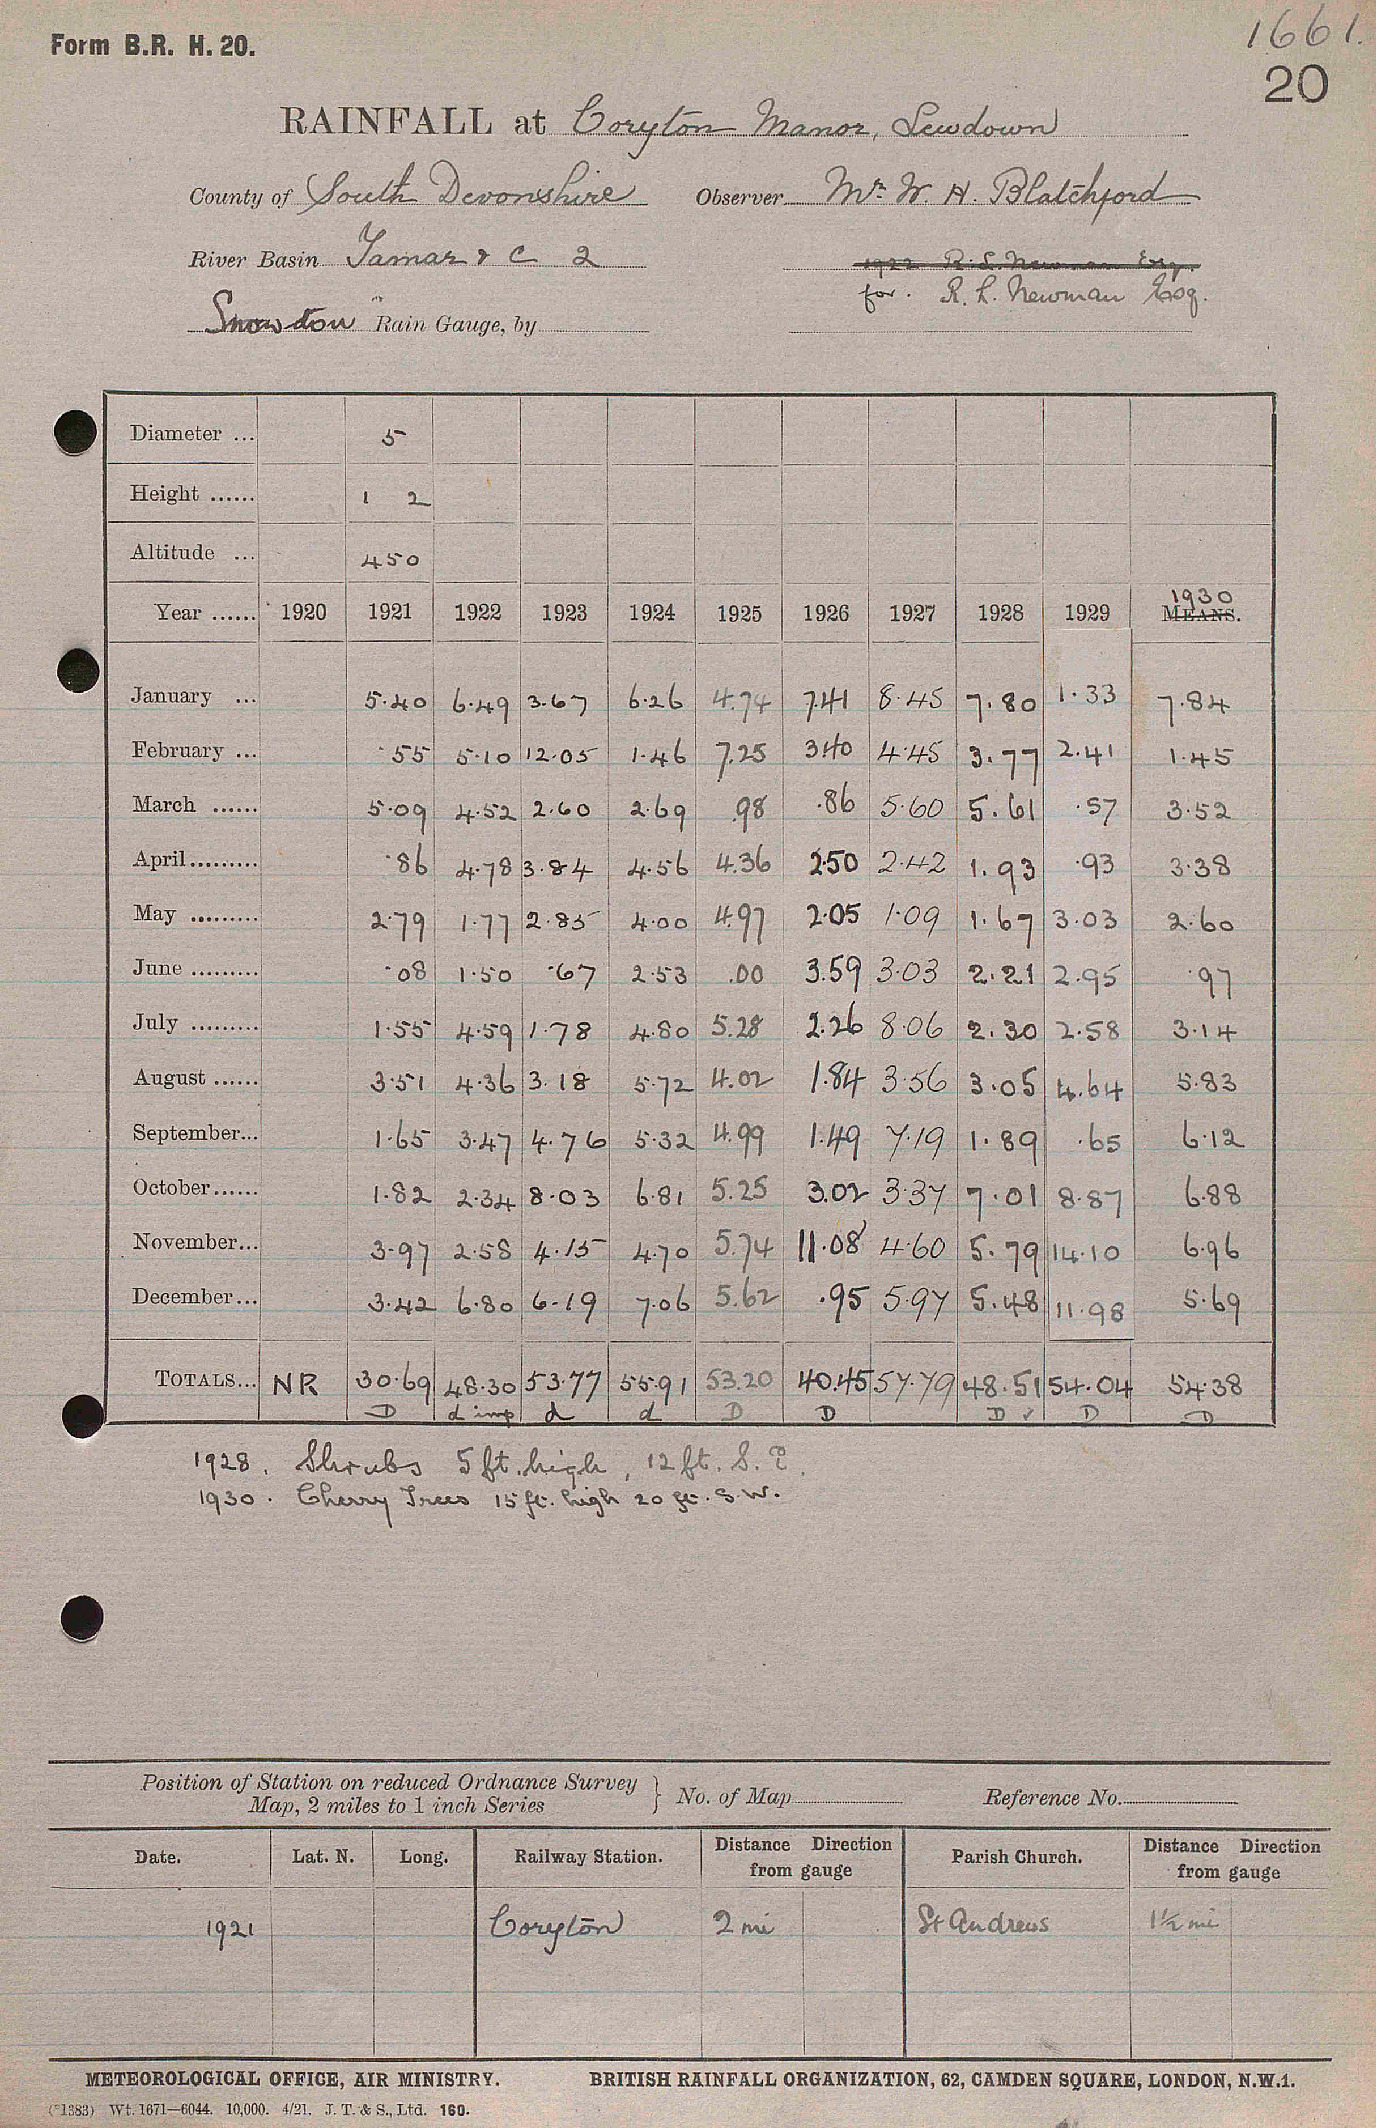 Form B.R. H. 20.
1661.
20
RAINFALL at Coryton Manor, Lewdown
County of South Devonshire Observer Mr. W. H. Blatchford
River Basin Tamar & C 2 1922 R. L. Newman Esq.
for. R. L. Newman Esq.
"Snowdon" Rain Gauge, by
Diameter ... 5
Height ...... 1 2
Altitude ... 450
1930
Year ...... 1920 1921 1922 1923 1924 1925 1926 1927 1928 1929 MEANS.
January ... 5.40 6.49 3.67 6.26 4.74 7.41 8.45 7.80 1.33 7.84
February ... .55 5.10 12.05 1.46 7.25 3.40 4.45 3.77 2.41 1.45
March ...... 5.09 4.52 2.60 2.69 .98 .86 5.60 5.61 .57 3.52
April......... .86 4.78 3.84 4.56 4.36 2.50 2.42 1.93 .93 3.38
May ......... 2.79 1.77 2.85 4.00 4.97 2.05 1.09 1.67 3.03 2.60
June ......... .08 1.50 .67 2.53 .00 3.59 3.03 2.21 2.95 .97
July ......... 1.55 4.59 1.78 4.80 5.28 2.26 8.06 2.30 2.58 3.14
August ...... 3.51 4.36 3.18 5.72 4.02 1.84 3.56 3.05 4.64 5.83
September... 1.65 3.47 4.76 5.32 4.99 1.49 7.19 1.89 .65 6.12
October...... 1.82 2.34 8.03 6.81 5.25 3.02 3.37 7.01 8.87 6.88
November... 3.97 2.58 4.15 4.70 5.74 11.08 4.60 5.79 14.10 6.96
December... 3.42 6.80 6.19 7.06 5.62 .95 5.97 5.48 11.98 5.69
TOTALS... NR 30.69 48.30 53.77 55.91 53.20 40.45 57.79 48.51 54.04 54.38
D d imp d d D D D ✓ D D
1928. Shrubs 5 ft. high, 12 ft. S.E.
1930. Cherry Trees 15 ft. high 20 ft. S.W.
Position of Station on reduced Ordnance Survey
Map, 2 miles to 1 inch Series } No. of Map Reference No.
Date. Lat. N. Long. Railway Station. Distance Direction from gauge Parish Church. Distance Direction from gauge
1921 Coryton 2 mi St Andrews 1½ mi
METEOROLOGICAL OFFICE, AIR MINISTRY. BRITISH RAINFALL ORGANIZATION, 62, CAMDEN SQUARE, LONDON, N.W.1.
(*1383) Wt. 1671—6044. 10,000. 4/21. J. T. & S., Ltd. 160.